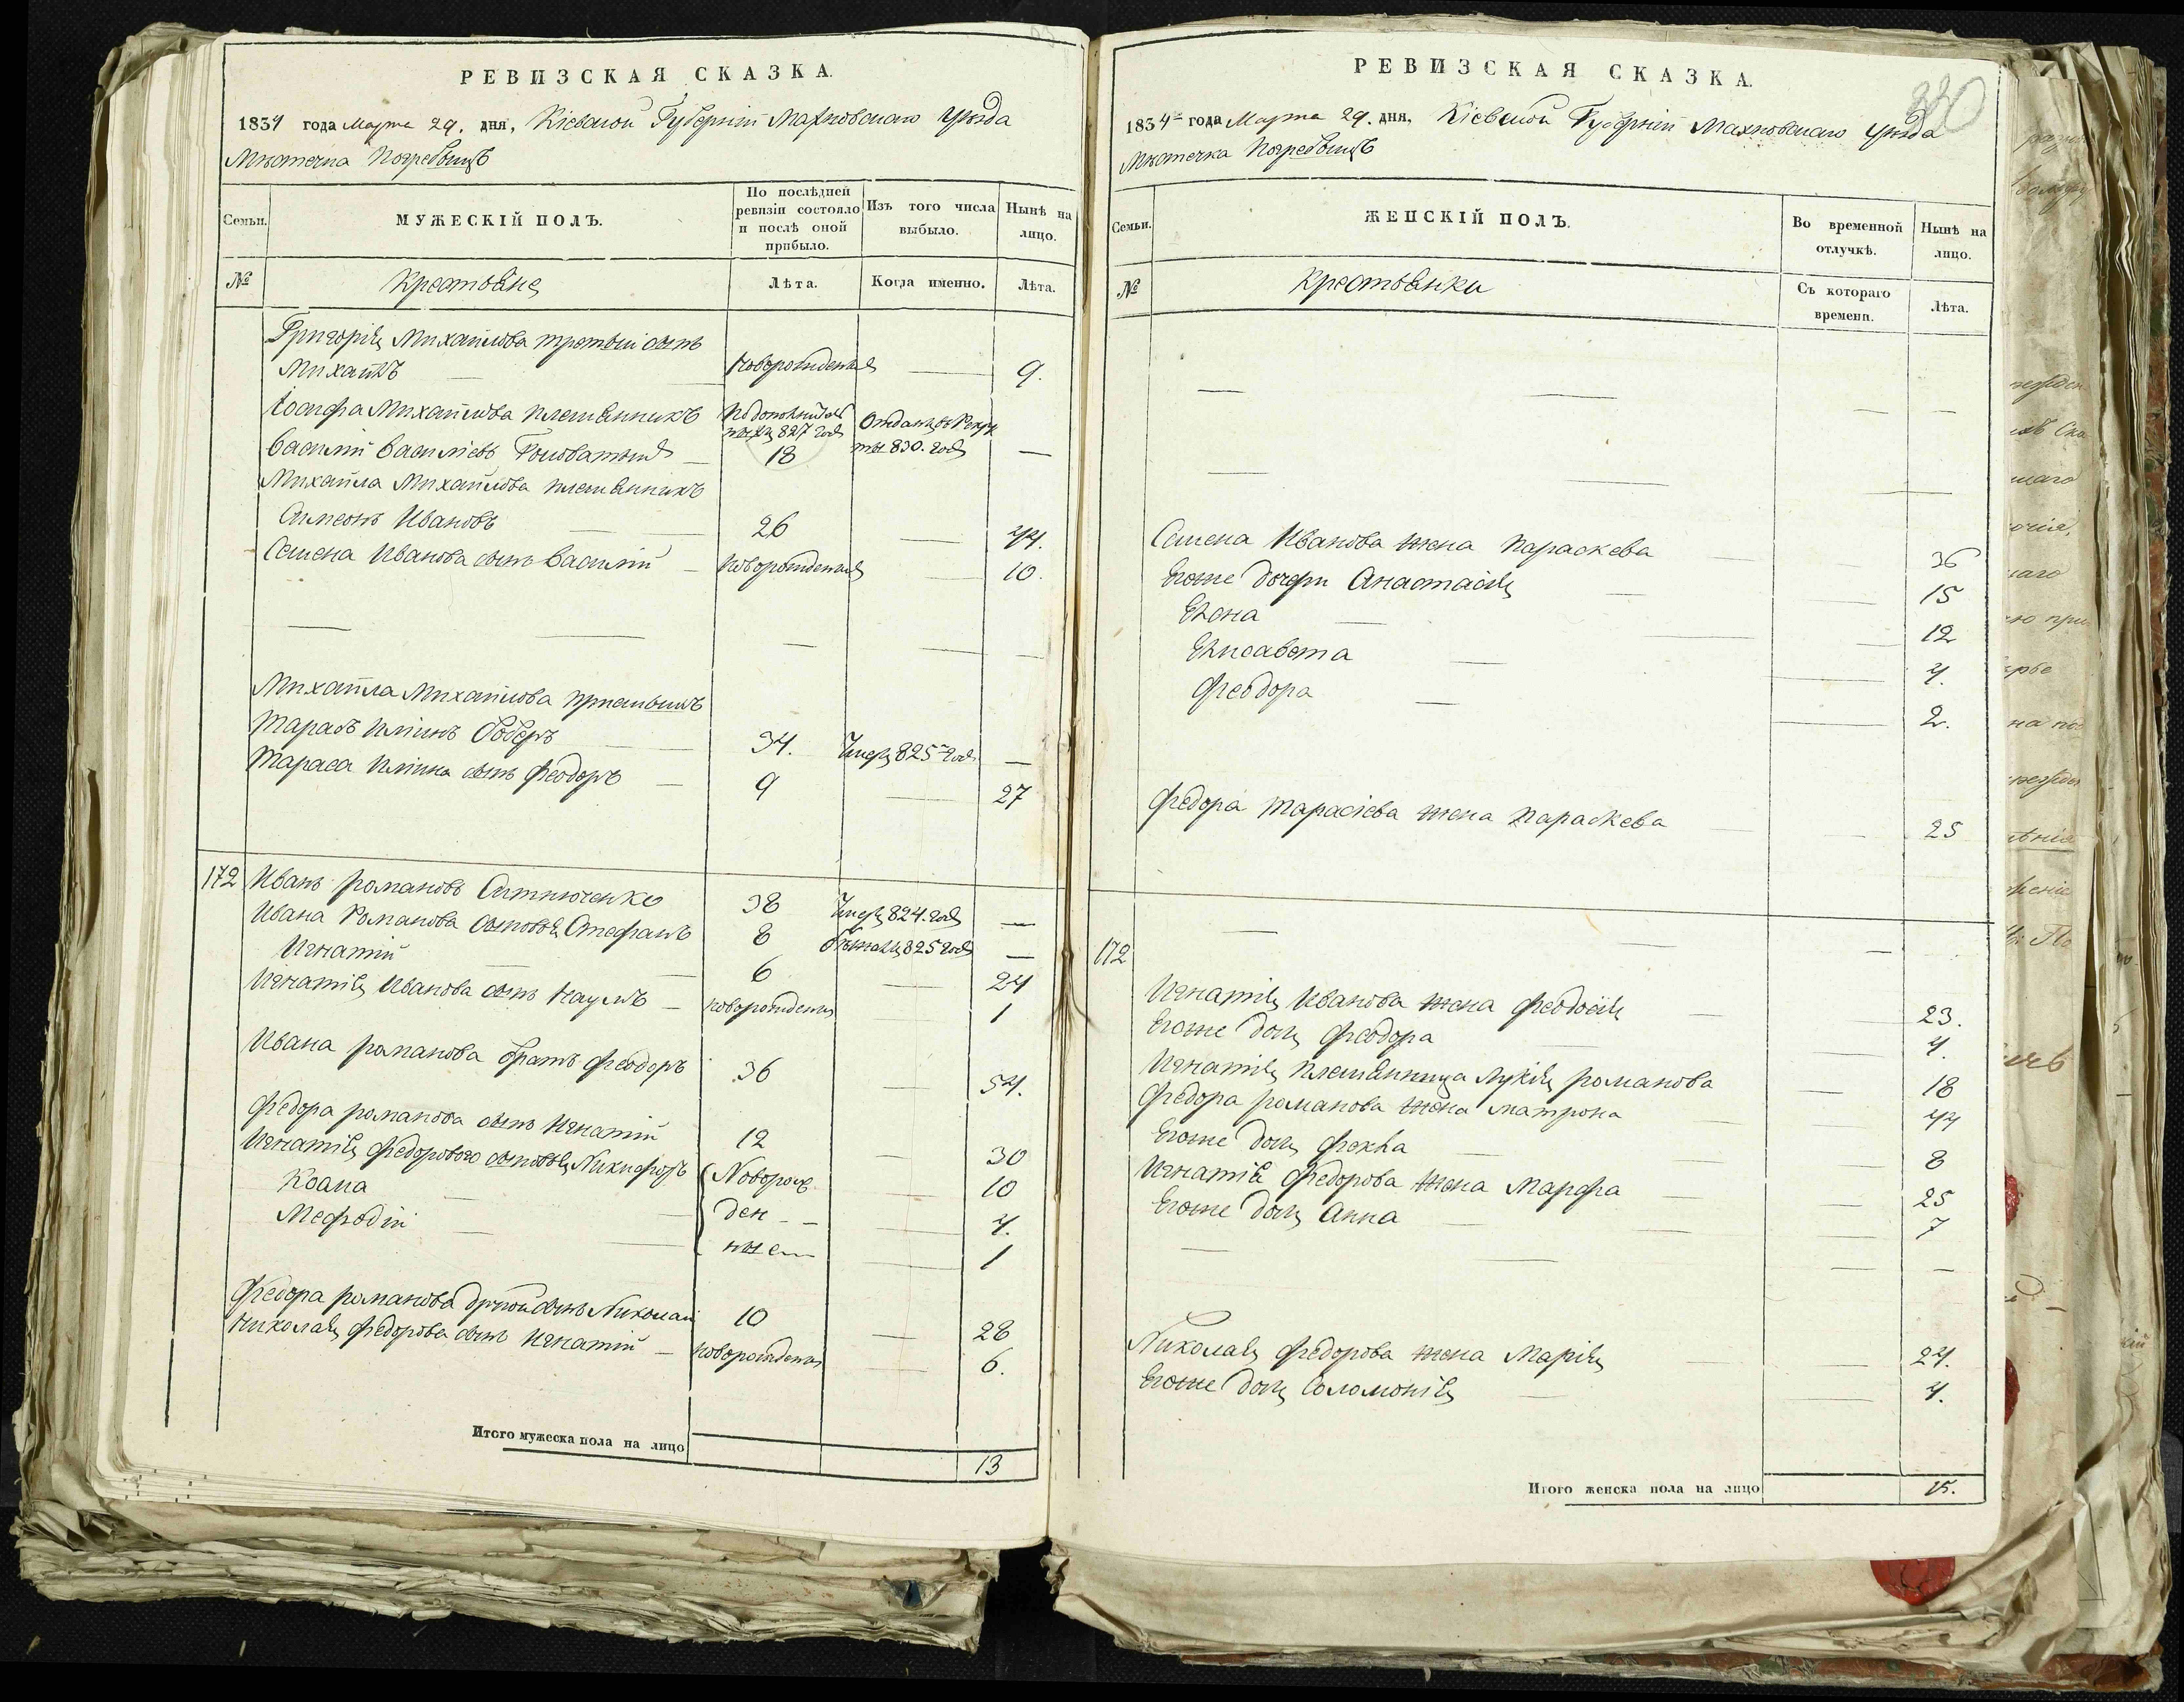 РЕВИЗСКАЯ СКАЗКА.
1834 года Марта 29. дня, Кіевской Губерніи Махновскаго уѣзда
Мѣстечка Погребыщъ
Семьи.
МУЖЕСКІЙ ПОЛЪ.
По послѣдней ревизіи состояло и послѣ оной прибыло.
Изъ того числа выбыло.
Нынѣ на лицо.
№
Крестьяне
Лѣта.
Когда именно.
Лѣта.
Григорія Михайлова третьій сынъ
Михаилъ новорожденный 9.
Іосифа Михайлова племянникъ
Василій Васильевъ 827 года 18 Отданъ въ Рекруты 830. года
Михайла Михайлова племянникъ
Симеонъ Ивановъ 26 44.
Семена Иванова сынъ Василій новорожденный 10.
Михайла Михайлова пріемышъ
Тарасъ Ильинъ Боберъ 34. Умеръ 825 года
Тараса Ильина сынъ Феодоръ 9 27
172 Иванъ Романовъ 38 Умеръ 824. года
Ивана Романова сыновья Стефанъ 8 бѣжалъ 825 года
Игнатій 6 24
Игнатія Иванова сынъ Наумъ новорожденный 1
Ивана Романова братъ Феодоръ 36 54.
Федора Романова сынъ Игнатій 12 30
Игнатія Федорового сыновья Никифоръ Новорож 10
Коана ден 4.
Мефодій ные 1
Федора Романова другой сынъ Николай 10 28
Николая Федорова сынъ Игнатій новорожденный 6.
Итого мужеска пола на лицо 13
РЕВИЗСКАЯ СКАЗКА.
330
1834 года Марта 29. дня, Кіевской Губерніи Махновскаго уѣзда
Мѣстечка Погребыщъ
Семьи.
ЖЕНСКІЙ ПОЛЪ.
Во временной отлучкѣ.
Нынѣ на лицо.
№
Крестьянки
Съ котораго времени.
Лѣта.
Семена Иванова жена Параскева 36
Егоже дочери Анастасія 15
Елена 12
Елисавета 4.
Феодора 2.
Федора Тарасіева жена Параскева 25
172
Игнатія Иванова жена Феодосія 23.
Егоже дочь Феодора 4.
Игнатія племянница Лукія Романова 18
Федора Романова жена Матрона 44
Егоже дочь Фекла 8
Игнатія Федорова жена Марфа 25
Егоже дочь Анна 7
Николая Федорова жена Марія 24.
Егоже дочь Соломонія 4.
Итого женска пола на лицо 15.